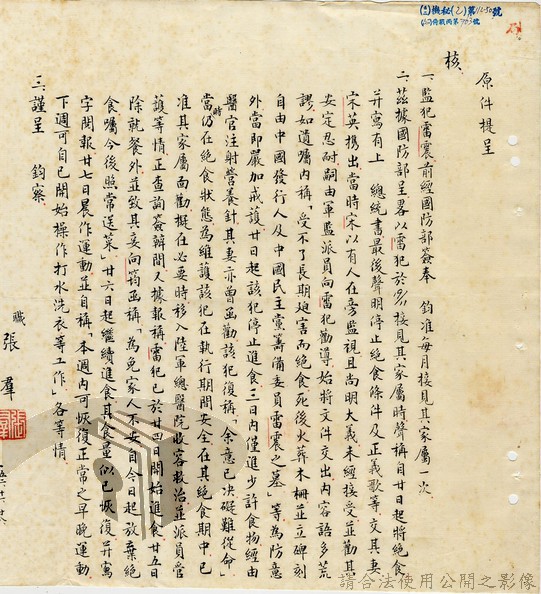 原件提呈
核
一、監犯雷震前經國防部簽奉 鈞准每月接見其家屬一次
二、茲據國防部呈畧以雷犯於 接見其家屬時聲稱自廿日起將絕食
并寫有上 總統書最後聲明停止絕食條件及正義歌等交其妻
宋英携出當時宋以有人在旁監視且尚明大義未經接受並勸其
安定忍耐嗣由軍監派員向雷犯勸導始將文件交出內容語多荒
謬如遺囑內稱「受不了長期迫害而絕食死後火葬木柵並立碑刻
自由中國發行人及中國民主黨籌備委員雷震之墓」等為防意
外當即嚴加戒護廿日起該犯停止進食三日內僅進少許食物經由
醫官注射營養針其妻亦曾函勸該犯復稱「余意已决礙難從命」
當時仍在絕食狀態為維護該犯在執行期間安全在其絕食期中已
准其家屬面勸擬在必要時移入陸軍總醫院收容救治並派員管
護等情正查詢簽辦間又據報稱雷犯已於廿四日開始進食廿五日
除就餐外並致其妻向筠函稱「為免家人不安自今日起放棄絕
食囑今後照常送菜」廿六日起繼續進食其食量似已恢復并寫
字閱報廿七日晨作運動並自稱「本週內可恢復正常之早晚運動
下週可自已開始操作打水洗衣等工作」各等情
三、謹呈 鈞察
職 張羣
請合法使用公開之影像